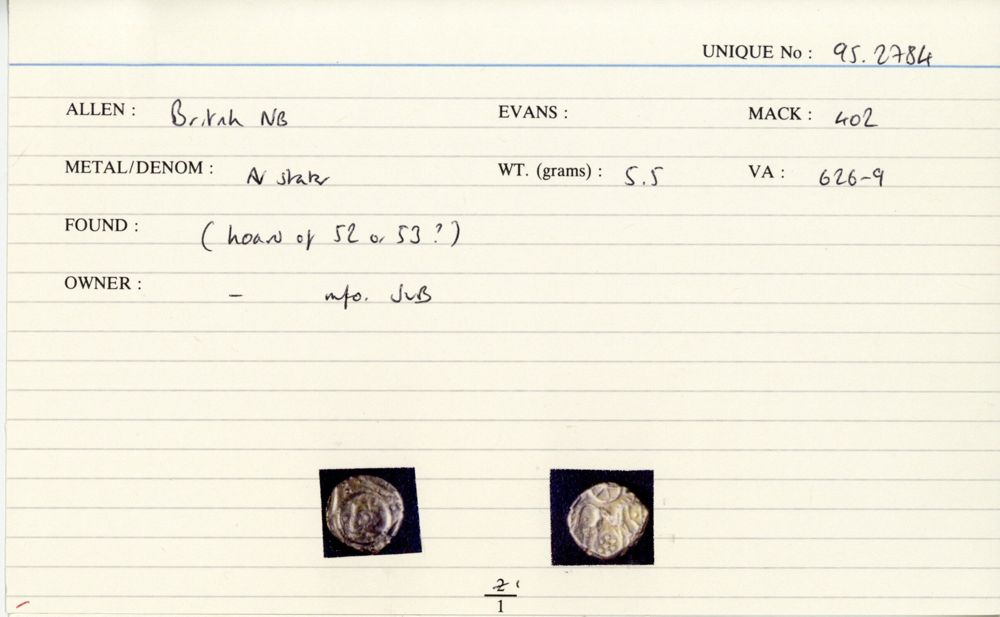 UNIQUE No : 95.2784
ALLEN : British NB EVANS : MACK : 402
METAL/DENOM : AV stater WT. (grams) : 5.5 VA : 626-9
FOUND : (hoard of 52 or 53?)
OWNER : – info. JvB
1